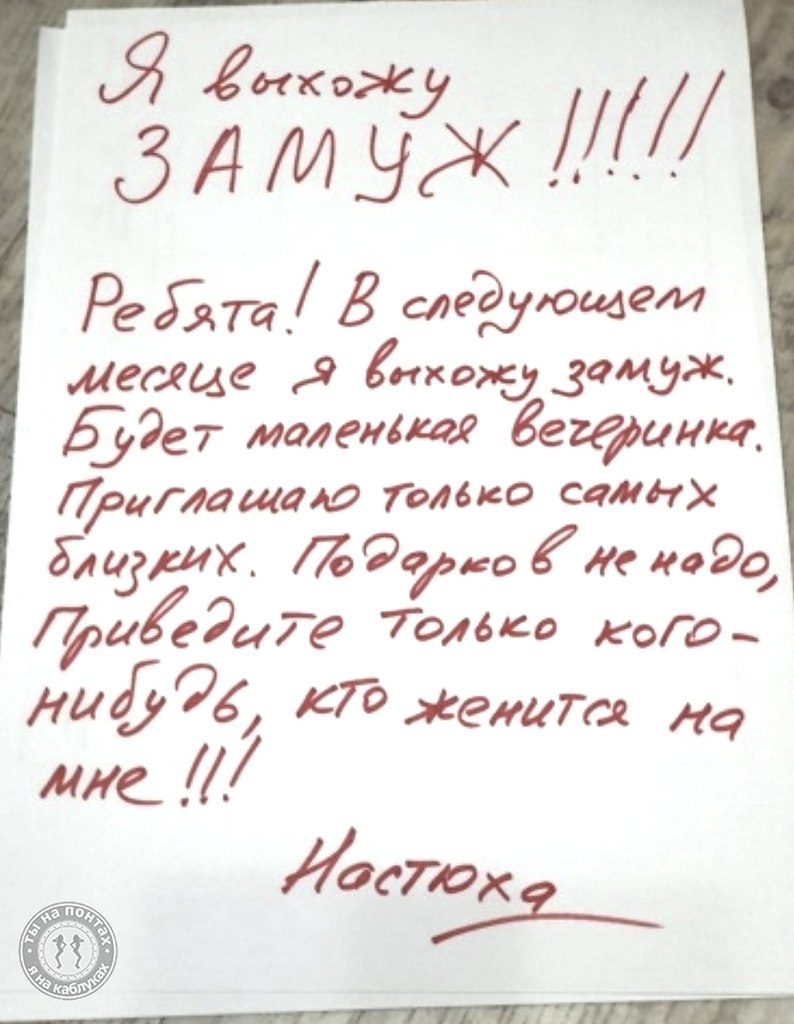 Я выхожу
ЗАМУЖ!!!!!
Ребята! В следующем
месяце я выхожу замуж.
Будет маленькая вечеринка.
Приглашаю только самых
близких. Подарков не надо,
Приведите только кого-
нибудь, кто женится на
мне!!!
Настюха
ты на понтах
я на каблуках